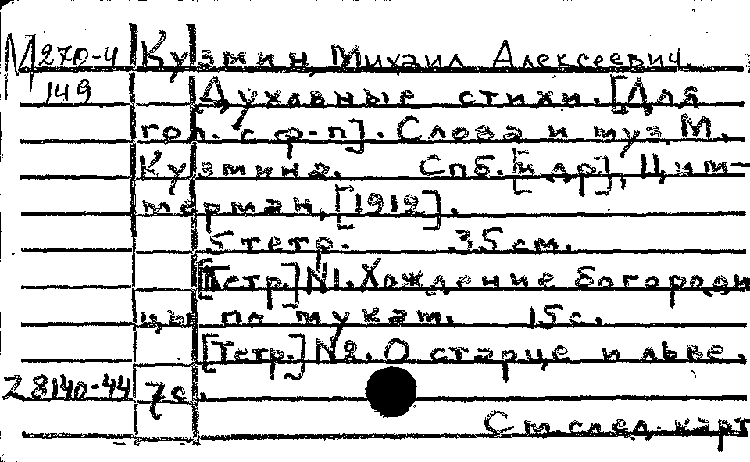 М270-4 Кузмин, Михаил Алексеевич.
149 Духовные стихи. [Для
гол. с ф-п]. Слова и муз. М.
Кузмина. Спб. [и др], Ц
[1912].
5 тетр. 35 см.
[Тетр.] N1. Хождение богороди
цы по мукам. 15с.
[Тетр.] N2. О старце и льве.
Z 8140-44 7с.
См. след. карт